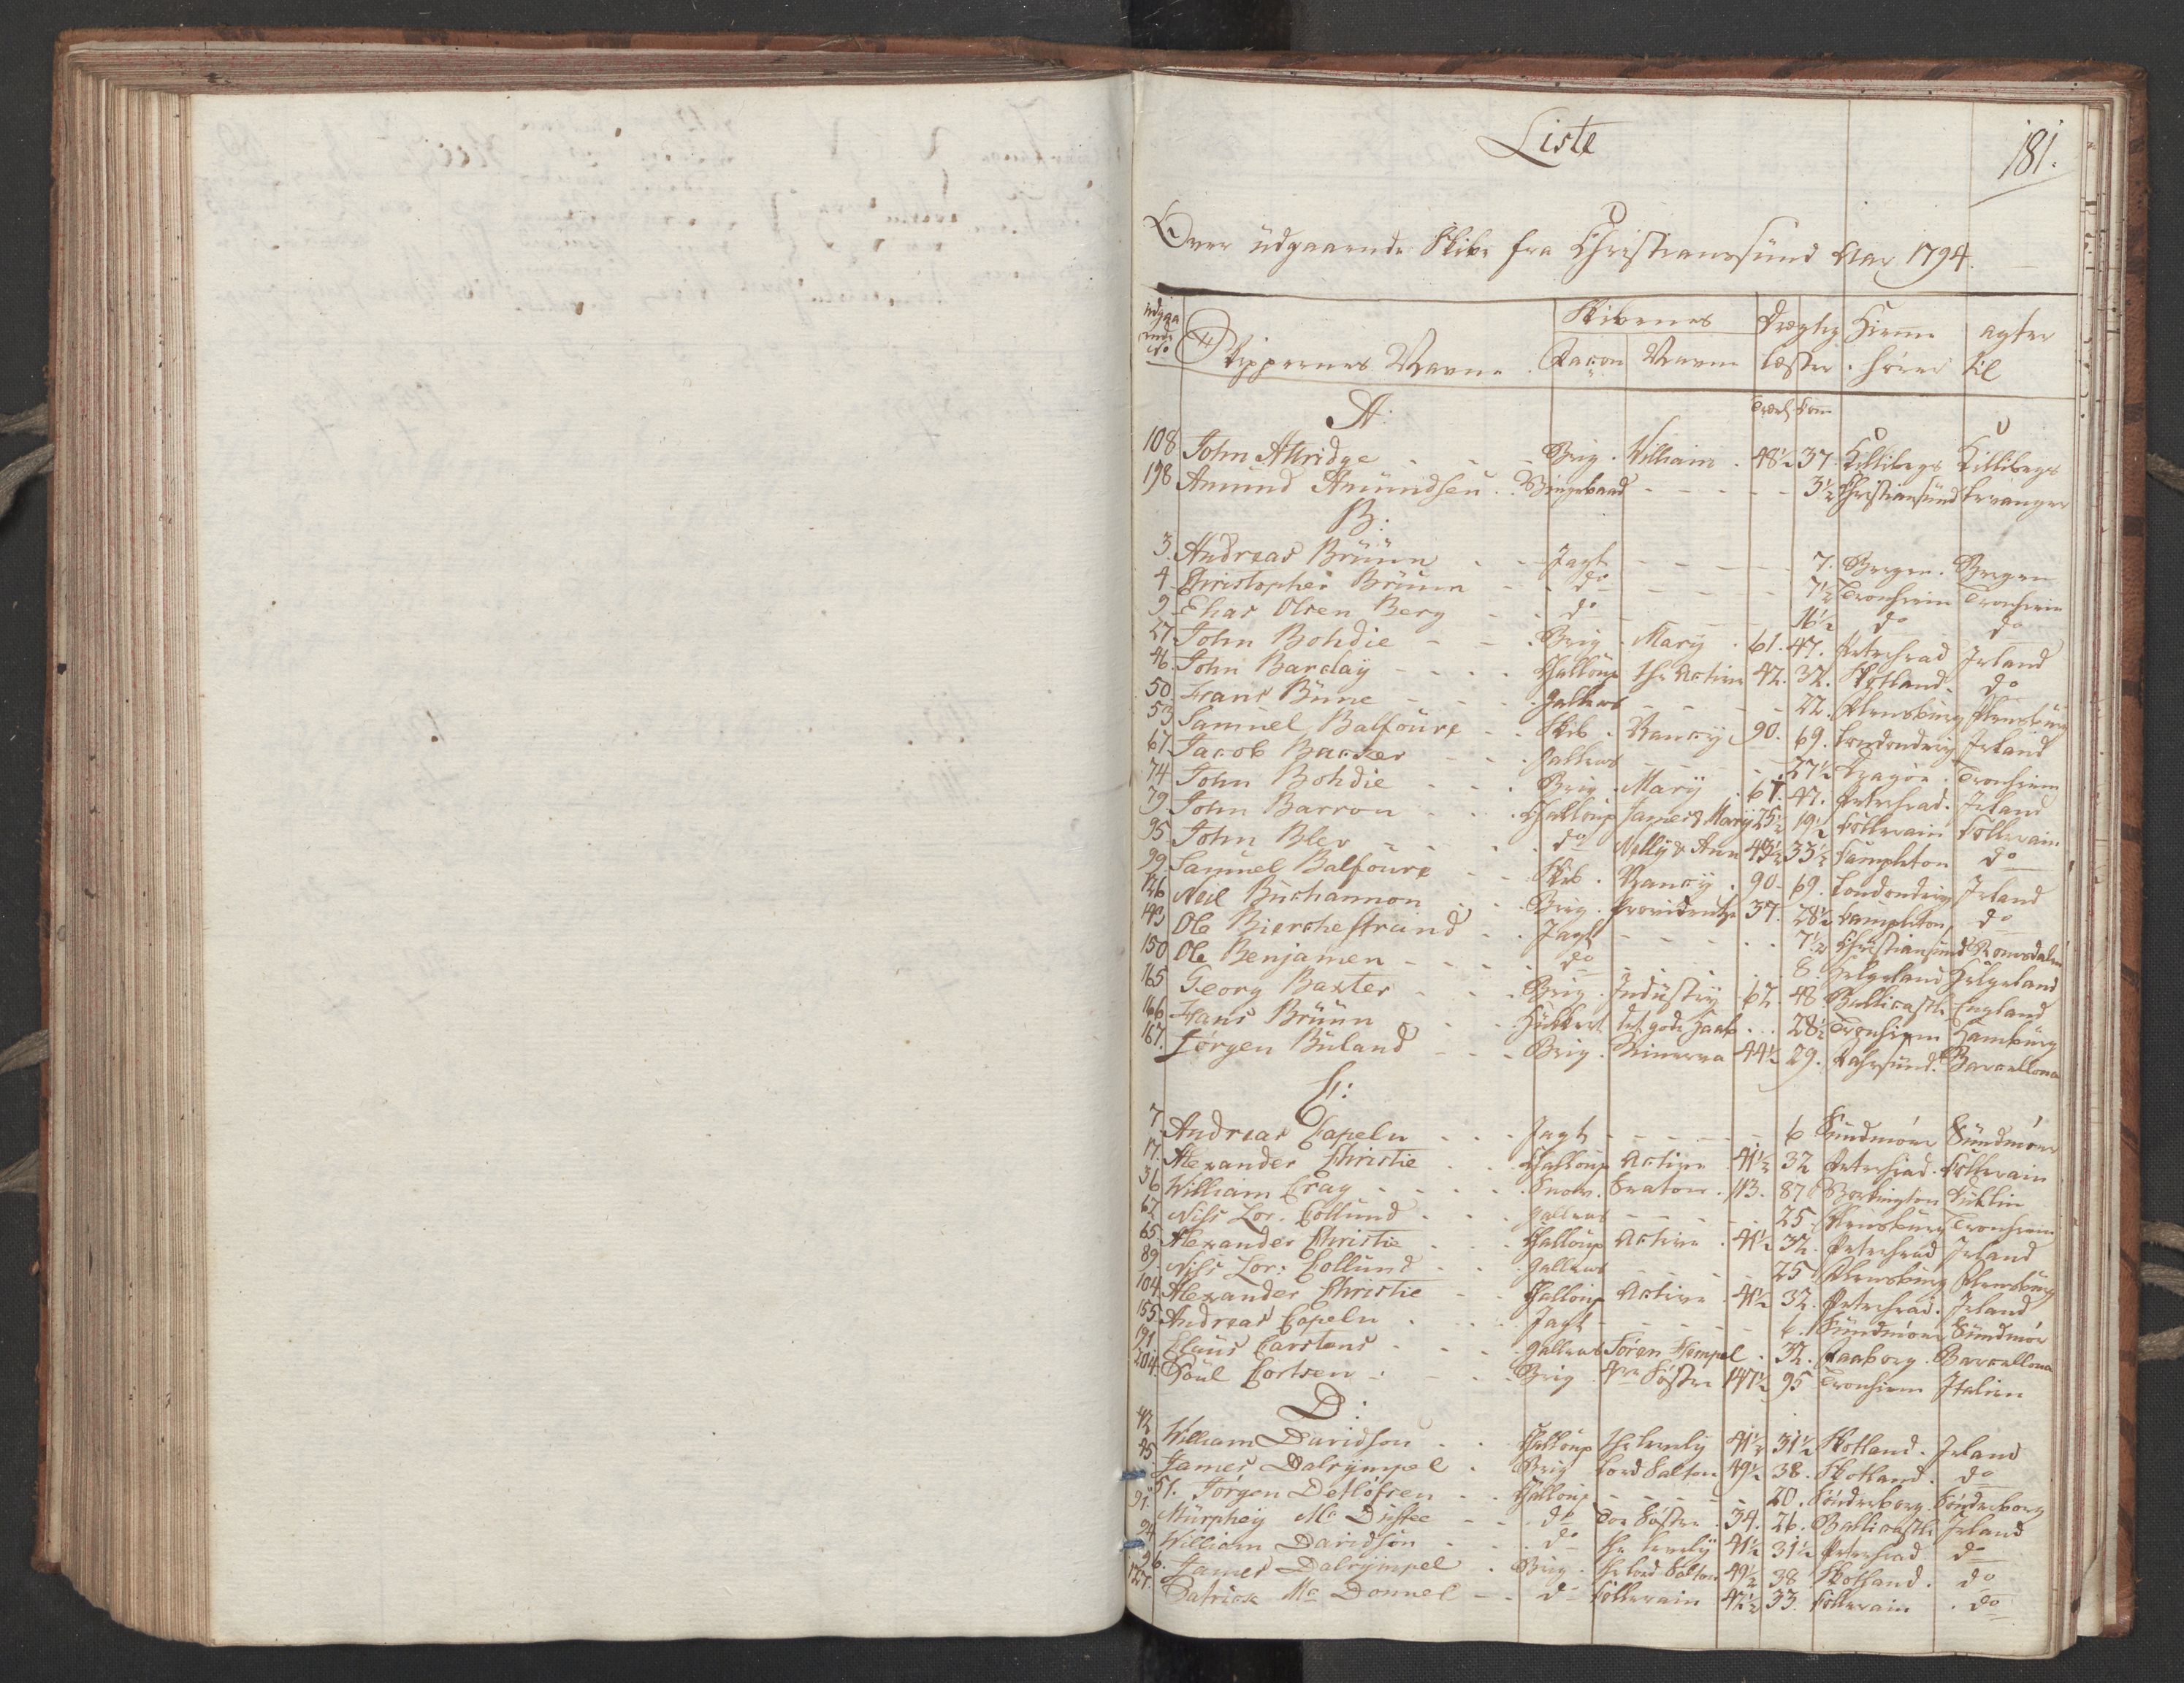 Liste
181.
Over üdgaaende Skibe fra Christianssünd Aar 1794.
üdgaaende No Skippernes Navne Skibenes Facon Navne Drægtig læster Hiemmehörer agter til
Træl Com
A.
108 John Attridge - - - Brig. William. 48½ 37. Killibegs Killibegs
198 Amünd Amündsen. - - - - 3½ Christiansünd Levanger
B:
3. Andreas Brüün - - Jagt - - - - 7. Bergen. Bergen
4. Christopher Brüün - - do - - - - 7½ Tronhiem Tronhiem
9. Elias Olsen Berg - - do - - - - 11½ do do
27 John Bohdie - - Brig. Mary. 61. 47. Peterhead Irland
46. John Barclay - - - - Challoup the Active 42. 32. Skotland. do
50. Frans Büne - - - Galleas - - - - 22. Flensbürg Flensbürg
53 Samüel Balfoure - - Skib. Nancy 90. 69. Londonderry Irland
67. Jacob Backer - - - Galleas - - - - 27½ Dragöe. Tronhiem
74 John Bohdie - - - Brig. Mary. 61. 47. Peterhead. Irland
79. John Barron - - - Challoup James & Mary 25½ 19½ Collerain Collerain
95. John Bler - - - - do Nelly & Ann 43½ 33½ Campleton do
99. Samüel Balfoure - - Skib. Nancy. 90. 69. Londonderry Irland
126 Neil Büchannon - - - Brig. Providentze 37. 28½ Campleton do
143 Ole Bierchestrand - - Jagt - - - - 7½ Christiansünd Romsdalen
150 Ole Benjamen - - - - do - - - - 8. Helgeland Helgeland
165 Georg Baxter - - - Brig. Indüstry. 62. 48. Ballicastle England
166 Hans Brüün - - - Hükkert det gode Haab. . . 28½ Tronhiem Hambürg
167. Jörgen Büland - - - Brig. Minerva 44½ 29. Fahrsünd. Barcellona
C:
7. Andreas Capeln - - - Jagt - - - - 6 Sündmöer Sündmöer
17. Alexander Christie - - - Challoup Active 41½ 32 Peterhead. Collerain
36 William Crag - - - - Snow. Seaton. 113. 87 Workington Dublin
62 Niss Lor. Collünd - - - Galleas - - - - 25. Flensbürg Tronhiem
65. Alexander Christie - - - Challoup Active. 41½ 32. Peterhead Irland
89. Niss Lor: Collünd - - - Galleas - - - - 25. Flensbürg Flensbürg
104. Alexander Christie - - - Challoup Active. 41½ 32. Peterhead. Irland
155. Andreas Capeln - - - Jagt - - - - 6. Sündmöer Sündmör
191 Claüs Carstens - - - Galleas Sören Hempel. 32. Faaborg. Barcellona
204. Poül Cortsen - - - Brig. 4re Söstre 147½ 95 Tronhiem Italien
D:
42 William Davidson - - Challoup the Lovely 41½ 31½ Skotland. Irland
45. James Dalrympel. Brig Lord Salton 49½ 38. Skotland. do
51. Jörgen Detlöfsen - - Challoup - - - - 20. Sönderborg. Sönderborg
91. Mürphey Mc Düffee - - do Toe Söstre. 34. 26. Ballicastle Irland
94 William Davidson - - - do the Lovely 41½ 31½ Peterhead do
96. James Dalrympel. Brig. the Lord Salton 49½ 38 Skotland. do
127. Patrick Mc Donnel - - do Collerain 42½ 33. Collerain. do